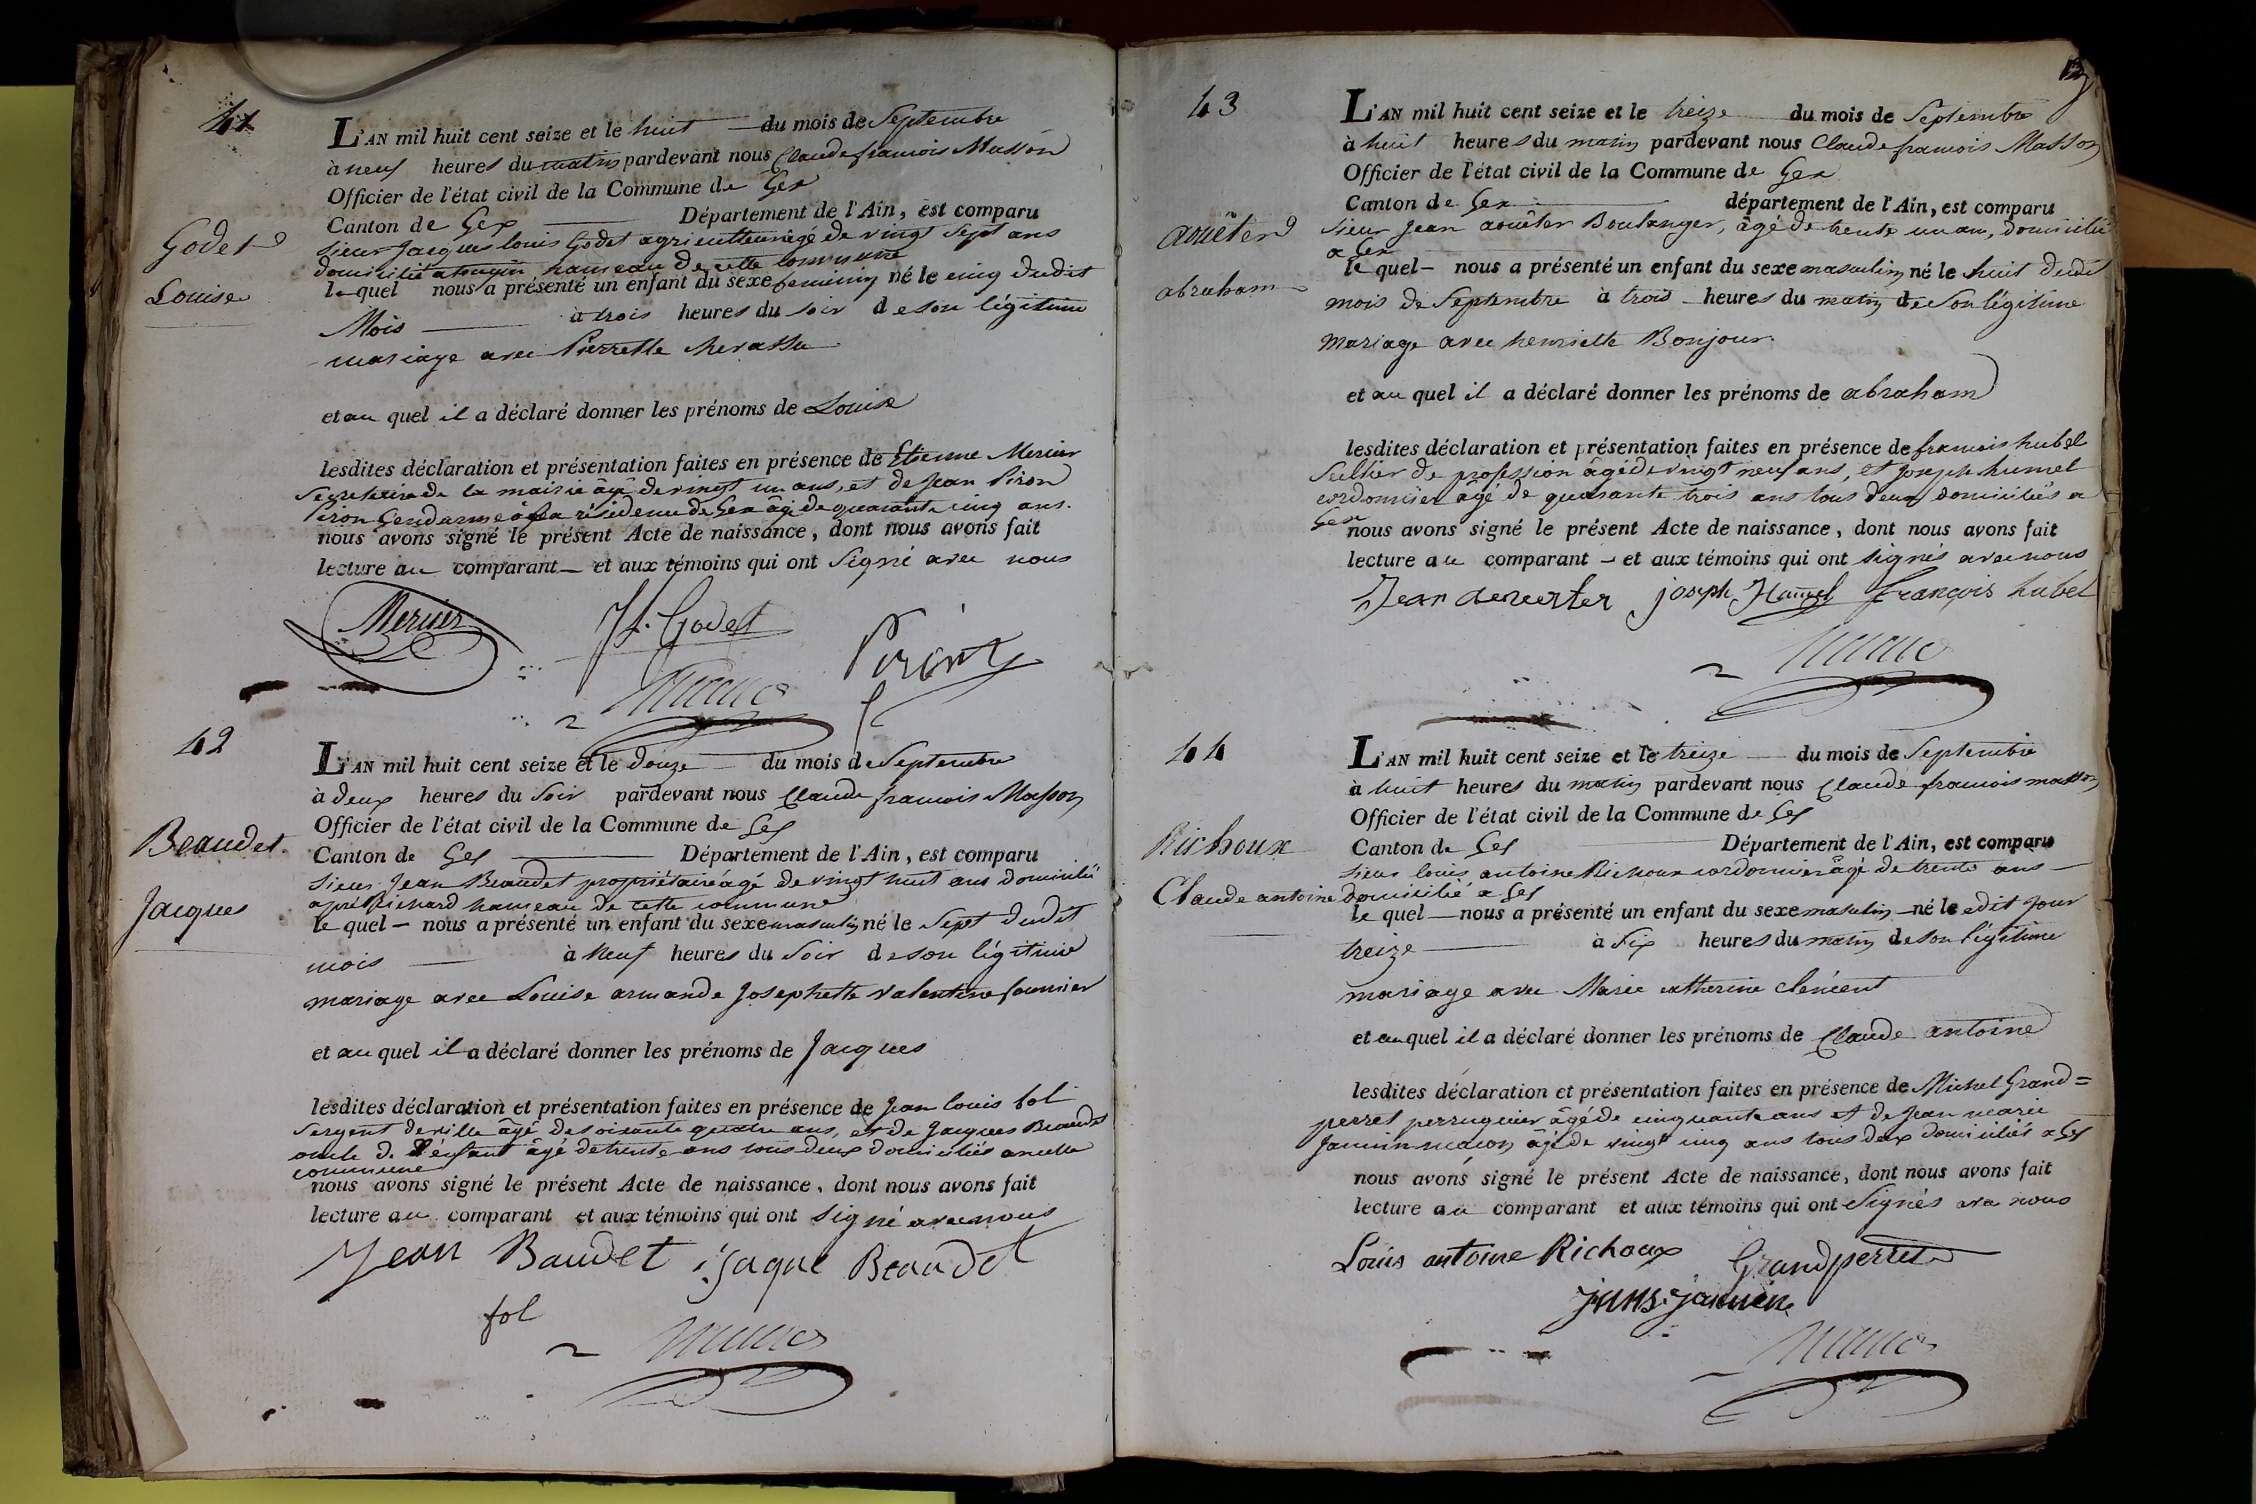 41
Godet
Louise
L'AN mil huit cent seize et le huit du mois de Septembre
à neuf heures du matin pardevant nous Claude francois Masson
Officier de l'état civil de la Commune de Gex
Canton de Gex Département de l'Ain, est comparu
sieur Jacques louis Godet agriculteur âgé de vingt sept ans
domicilié a tougin hameau de cette commune
lequel nous a présenté un enfant du sexe feminin né le cinq dudit
Mois à trois heures du soir de son légitime
mariage avec Pierrette
et au quel il a déclaré donner les prénoms de Louise
lesdites déclaration et présentation faites en présence de Etienne Mercier
Secretaire de la mairie âgé de vingt un ans, et de Jean Piron
Piron Gendarme à la résidence de Gex âgé de quarante cinq ans.
nous avons signé le présent Acte de naissance, dont nous avons fait
lecture au comparant et aux témoins qui ont Signé avec nous
Mercier JL. Godet Piron
42
Beaudet
Jacques
L'AN mil huit cent seize et le douze du mois de Septembre
à deux heures du Soir pardevant nous Claude francois Masson
Officier de l'état civil de la Commune de Gex
Canton de Gex Département de l'Ain, est comparu
Sieur Jean Beaudet propriétaire âgé de vingt huit ans domicilié
a pré Richard hameau de cette commune
le quel nous a présenté un enfant du sexe masculin né le Sept dudit
mois à Neuf heures du Soir de son légitime
mariage avec Louise armande Josephette valentine fournier
et au quel il a déclaré donner les prénoms de Jacques
lesdites déclaration et présentation faites en présence de Jean louis fol
Sergent de ville âgé de soixante quatre ans, et de Jacques Beaudet
oncle de l'enfant âgé de trente ans tous deux domiciliés en cette
commune
nous avons signé le présent Acte de naissance, dont nous avons fait
lecture au comparant et aux témoins qui ont signé avec nous
Jean Baudet Jaque Beaudet
fol
43
aouêter
abraham
L'AN mil huit cent seize et le treize du mois de Septembre
à huit heures du matin pardevant nous Claude francois Masson
Officier de l'état civil de la Commune de Gex
Canton de Gex département de l'Ain, est comparu
sieur Jean aouêter Boulanger, âgé de trente un ans, domicilié
a Gex
le quel nous a présenté un enfant du sexe masculin né le huit dudit
mois de Septembre à trois heures du matin de Son légitime
mariage avec henriette Bonjour.
et au quel il a déclaré donner les prénoms de abraham
lesdites déclaration et présentation faites en présence de francois hubel
Sellier de profession âgé de vingt neuf ans, et Joseph humel
cordonnier âgé de quarante trois ans tous deux domiciliés a
Gex
nous avons signé le présent Acte de naissance, dont nous avons fait
lecture au comparant et aux témoins qui ont signés avec nous
Jean joseph françois hubel
44
Richoux
Claude antoine
L'AN mil huit cent seize et le treize du mois de Septembre
à huit heures du matin pardevant nous Claude francois masson
Officier de l'état civil de la Commune de Gex
Canton de Gex Département de l'Ain, est comparu
sieur louis antoine Richoux cordonnier âgé de trente ans
domicilié a Gex
le quel nous a présenté un enfant du sexe masculin né le edit jour
treize à Six heures du matin de son légitime
mariage avec Marie catherine clément
et au quel il a déclaré donner les prénoms de Claude antoine
lesdites déclaration et présentation faites en présence de Michel Grand=
perret perruquier âgé de cinquante ans et de Jean marie
Jannin macon âgé de vingt cinq ans tous deux domiciliés a Gex
nous avons signé le présent Acte de naissance, dont nous avons fait
lecture au comparant et aux témoins qui ont Signés avec nous
Louis antoine Richoux Grandperret